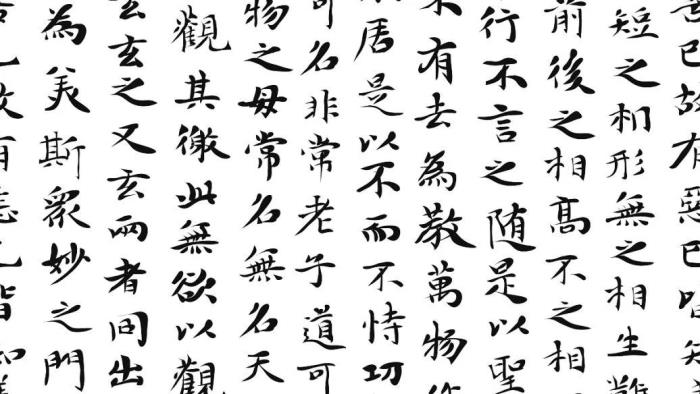 已故有惡已皆
短之相形無之相生難
前後之相高不之相
行不言之随是以聖
有去為教萬物
居是以不而不恃功
可名非常老子道可
物之毋常名無名天
觀其徼此無欲以觀
玄玄之又玄兩者同出
為美斯眾妙之門